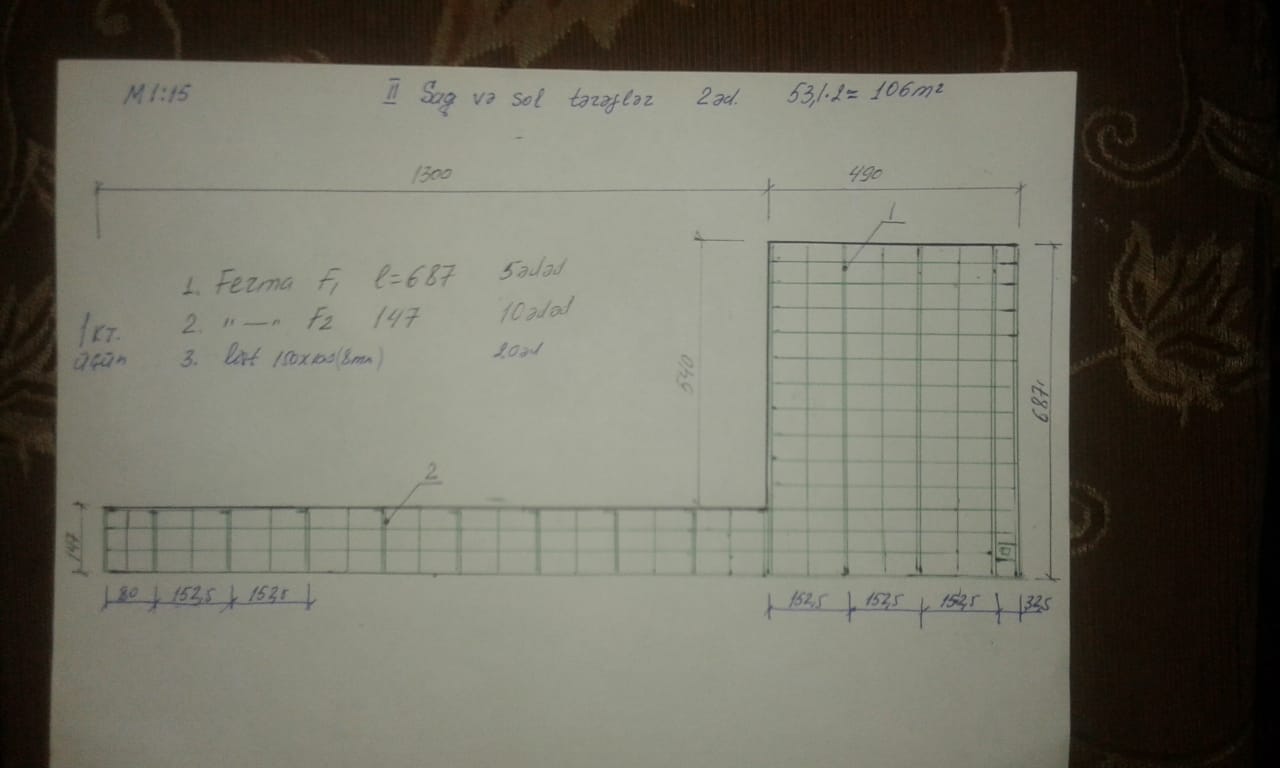 M 1:15
II Sağ və sol tərəflər 2əd. 53,1·2= 106m²
1300
490
1
1. Ferma F₁ l=687 5ədəd
2. "—" F2 147 10ədəd
1 кт. üçün
3. list 150x100(8mm) 20əd
540
687
2
147
80 152,5 152,5
152,5 152,5 152,5 32,5